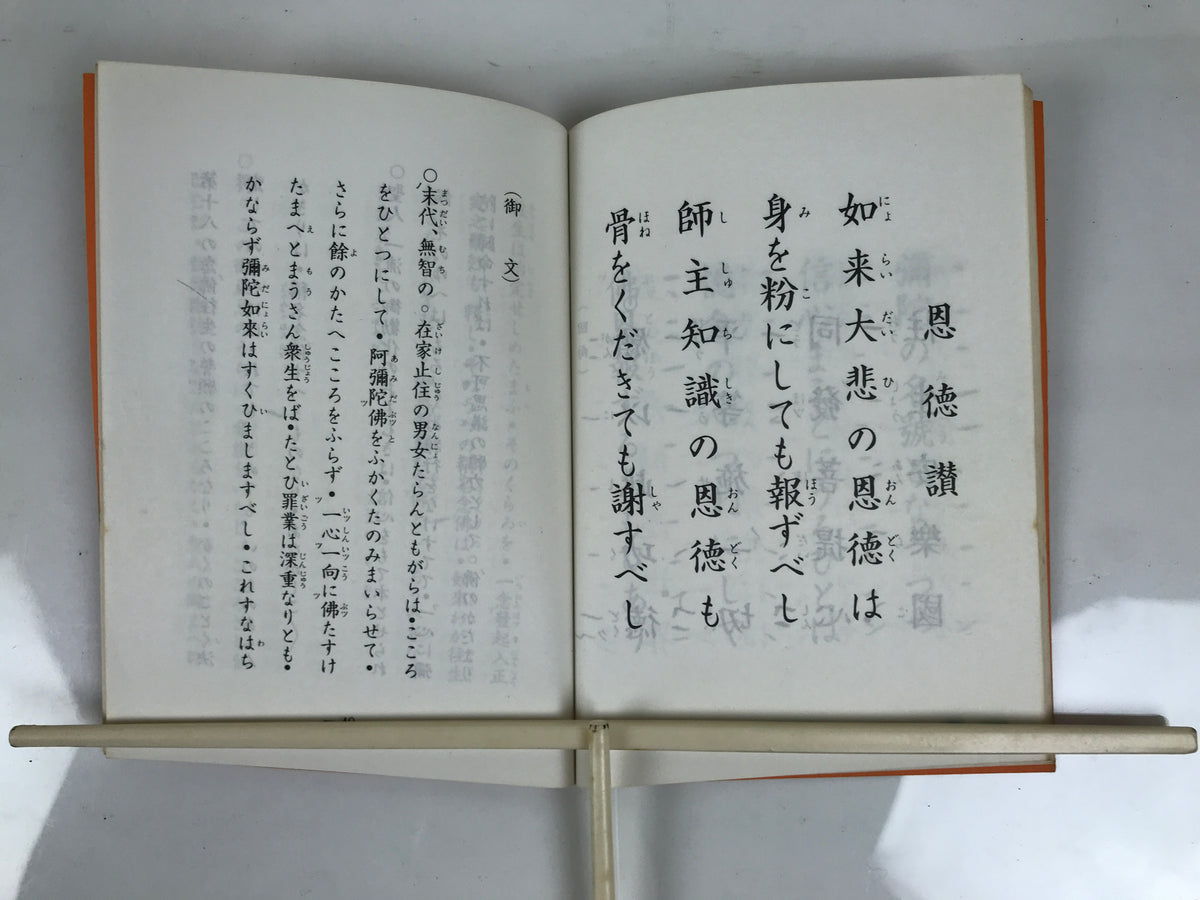 恩徳讃
如来大悲の恩徳は
身を粉にしても報ずべし
師主知識の恩徳も
骨をくだきても謝すべし
（御文）
○末代、無智の。在家止住の男女たらんともがらは・こころ
をひとつにして・阿彌陀佛をふかくたのみまいらせて・
さらに餘のかたへこころをふらず・一心一向に佛たすけ
たまへとまうさん衆生をば・たとひ罪業は深重なりとも・
かならず彌陀如來はすくひましますべし・これすなはち